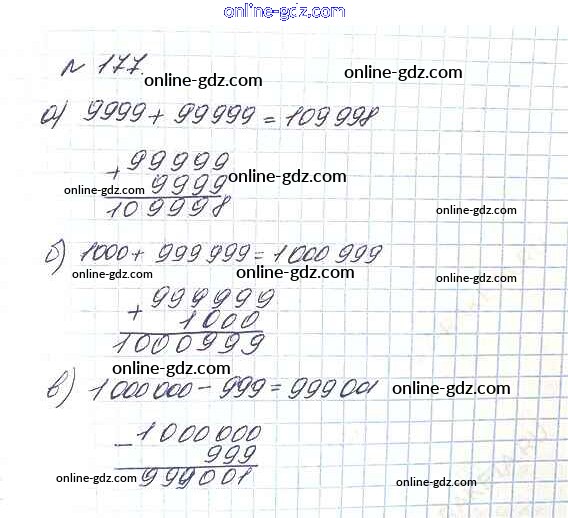 online-gdz.com
№ 177.
online-gdz.com online-gdz.com
а) 9999 + 99999 = 109998
+ 99999 online-gdz.com
online-gdz.com 9999
109998 online-gdz.com
б) 1000 + 999 999 = 1000 999
online-gdz.com online-gdz.com online-gdz.com
+ 999999
1000
1000999
online-gdz.com
в) 1 000 000 - 999 = 999 001 online-gdz.com
- 1000000
999
online-gdz.com 999001 online-gdz.com